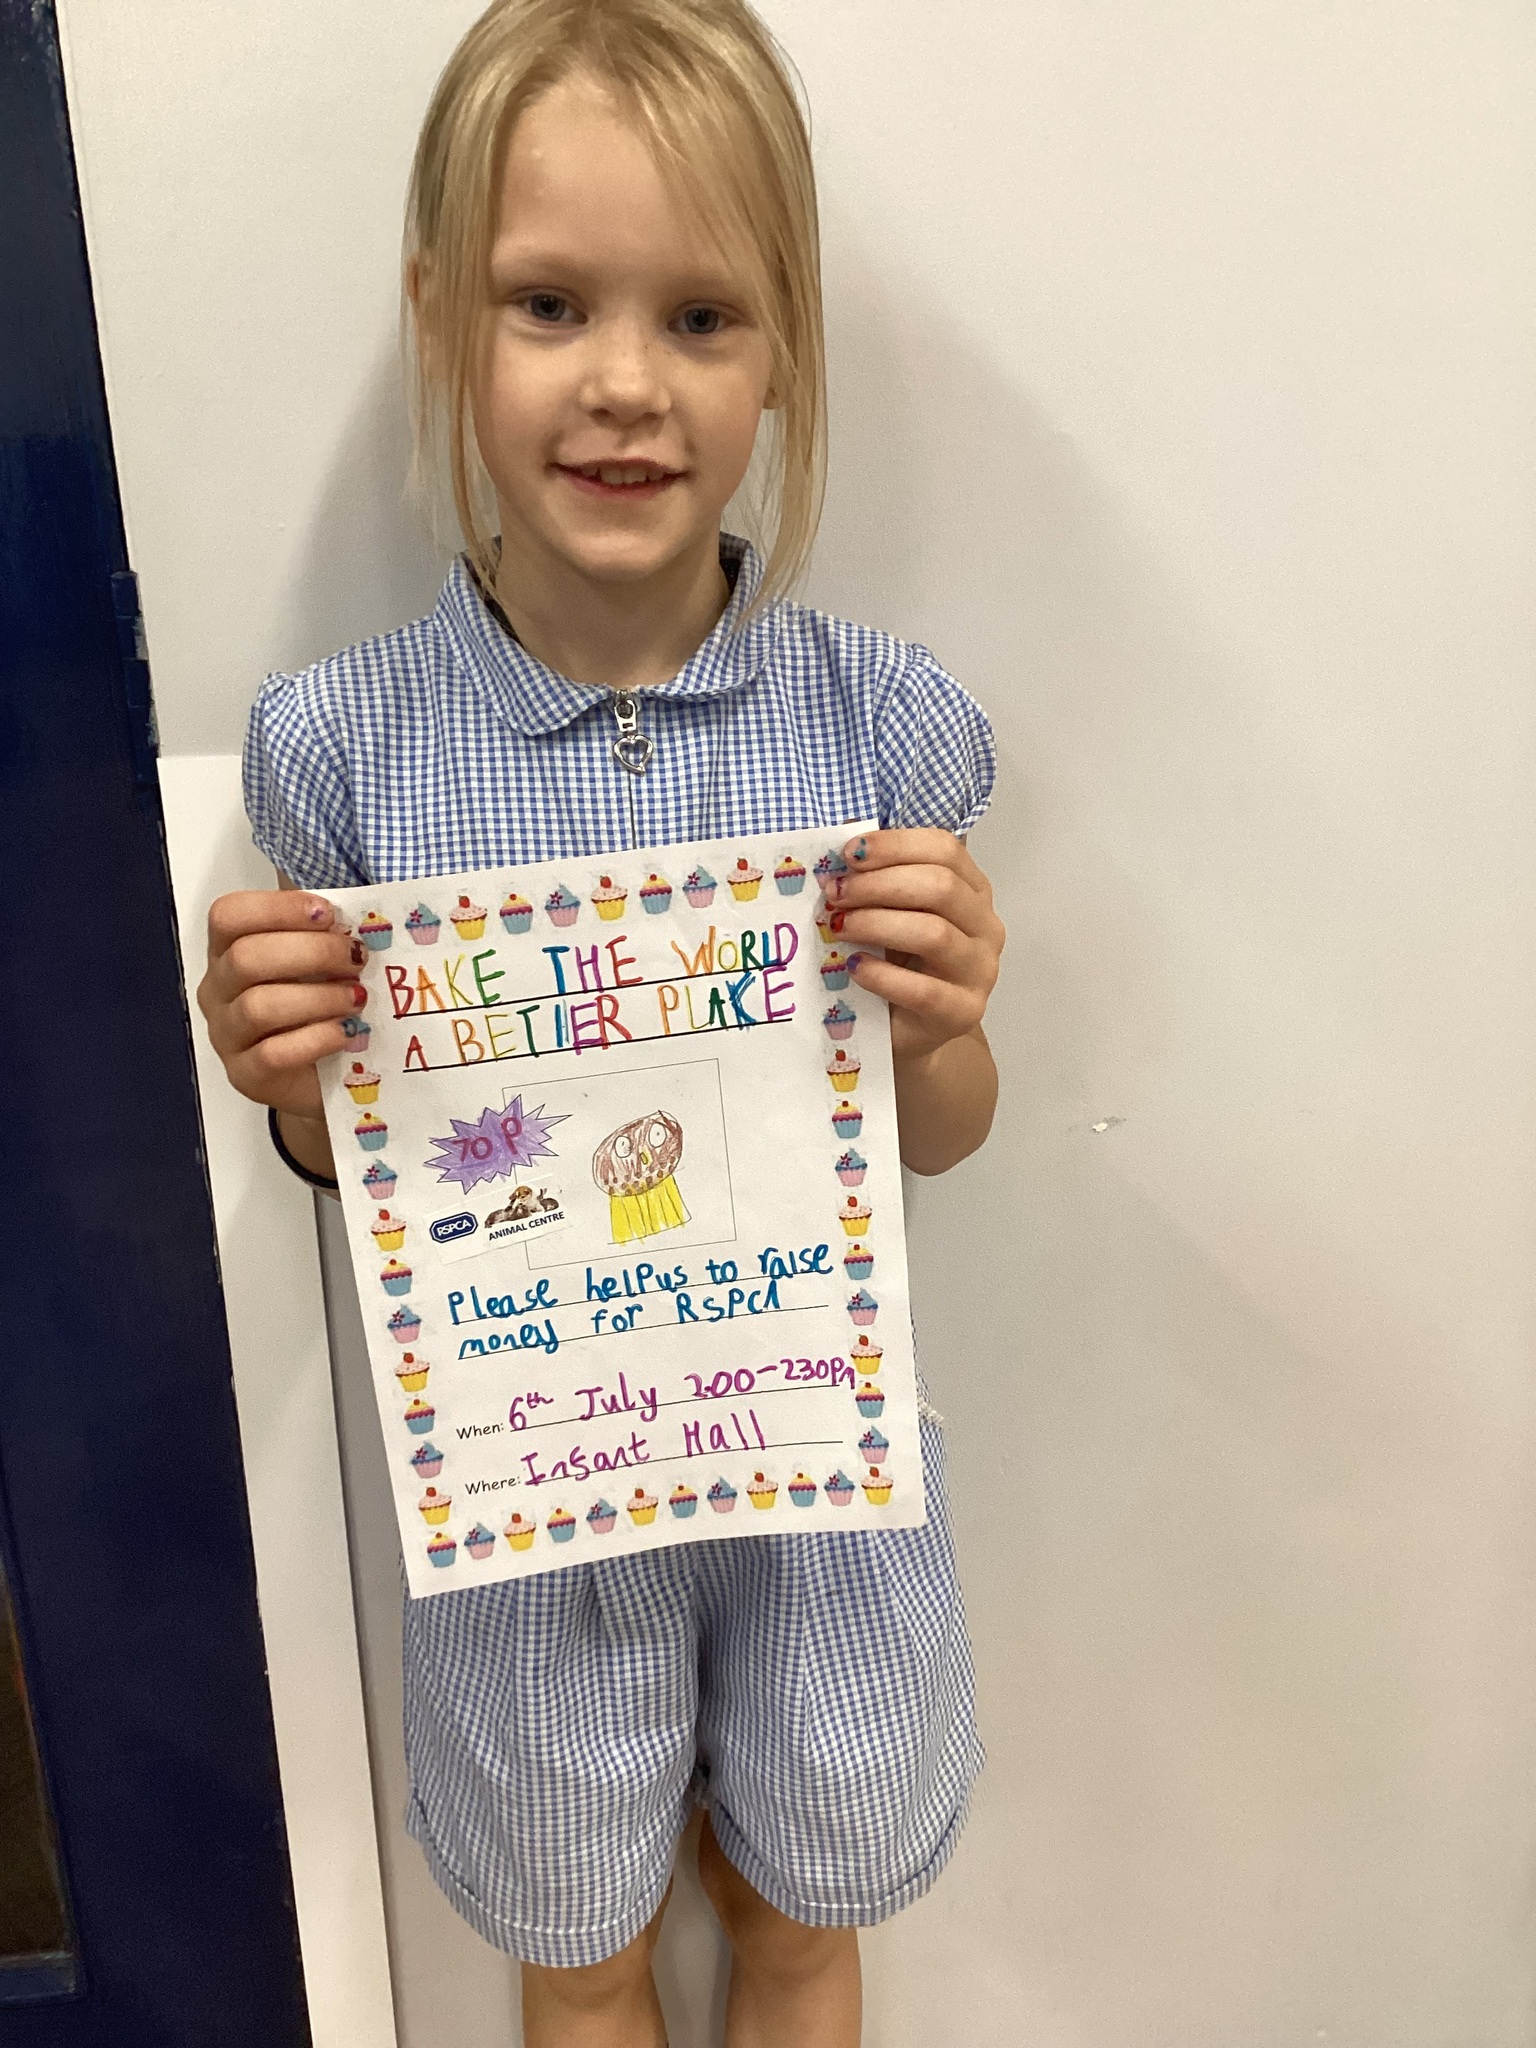 BAKE THE WORLD
A BETTER PLAKE
70 P
RSPCA
ANIMAL CENTRE
Please help us to raise
money for RSPCA
When: 6th July 2.00-230pm
Where: Infant Hall